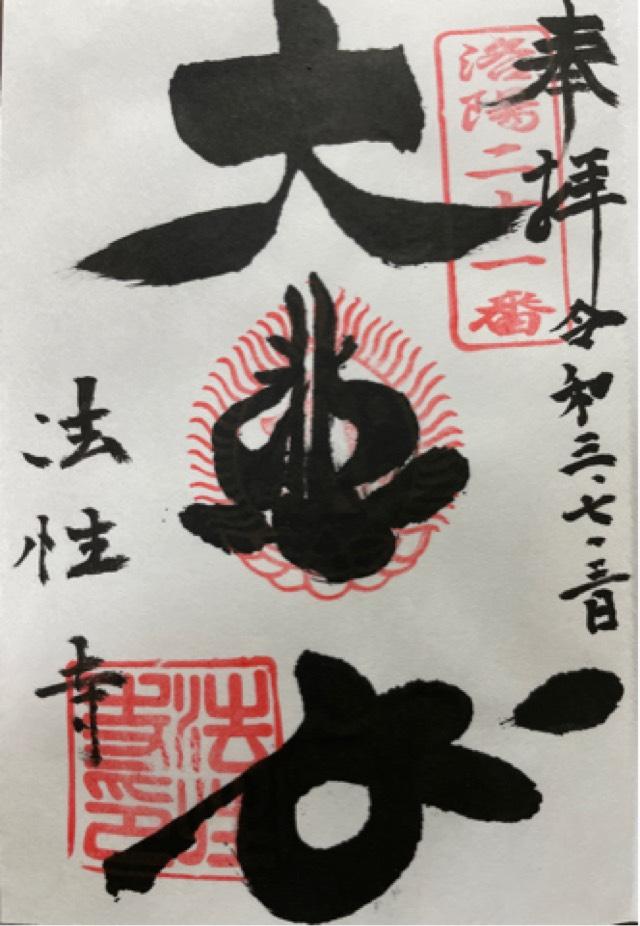 奉拝
令和三・七・三日
洛陽二十一番
大悲殿
法性寺
法性寺印